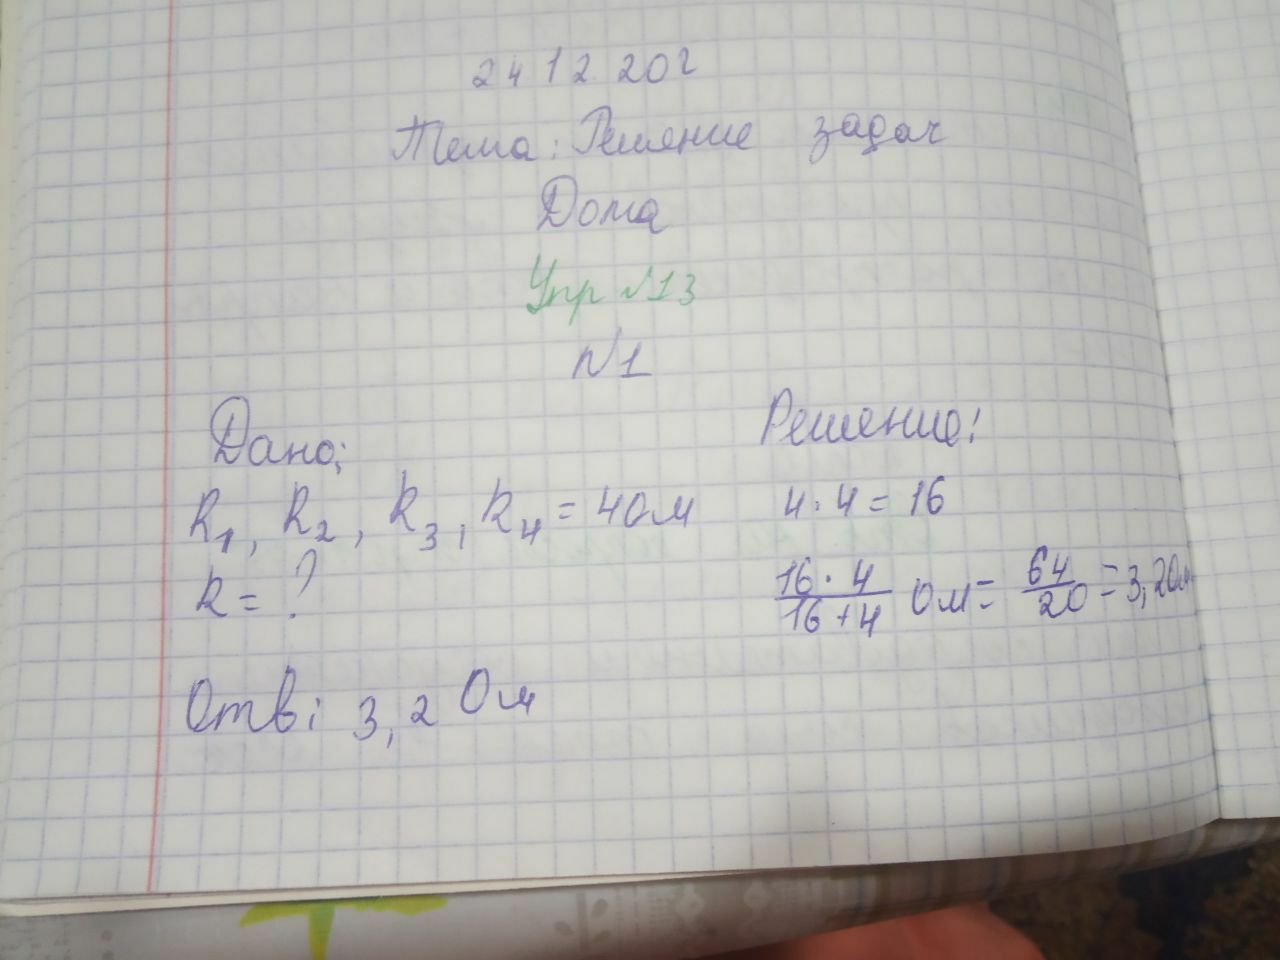 24 12 20г
Тема: Решение задач
Дома
Упр №13
№1
Дано:
R1, R2, R3, R4 = 4Ом
R = ?
Решение:
4·4=16
16·4/16+4 Ом = 64/20 = 3,2Ом
Отв: 3,2 Ом